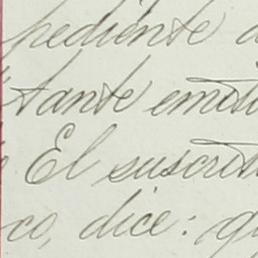 pediente a
tante emiti
El suscrit
co, dice: qu